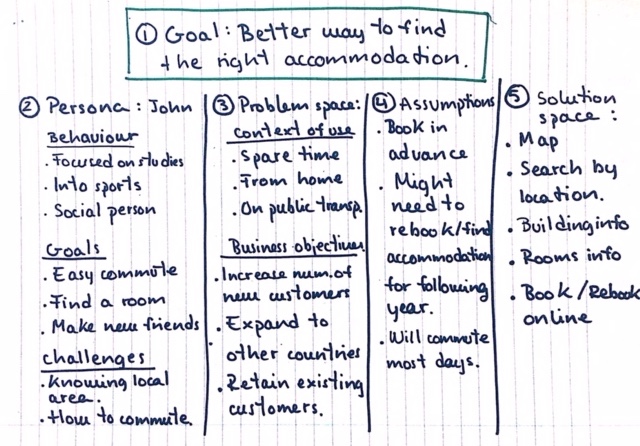 ① Goal: Better way to find
the right accommodation.
② Persona: John
Behaviour
. Focused on studies
. Into sports
. Social person
Goals
. Easy commute
. Find a room
. Make new friends
Challenges
. Knowing local
area.
. How to commute.
③ Problem space:
Context of use
. Spare time
. From home
. On public transp.
Business objectives
. Increase num. of
new customers
. Expand to
other countries
. Retain existing
customers.
④ Assumptions
. Book in
advance
. Might
need to
rebook/find
accommodation
for following
year.
. Will commute
most days.
⑤ Solution
space:
. Map
. Search by
location.
. Building info
. Rooms info
. Book/Rebook
online